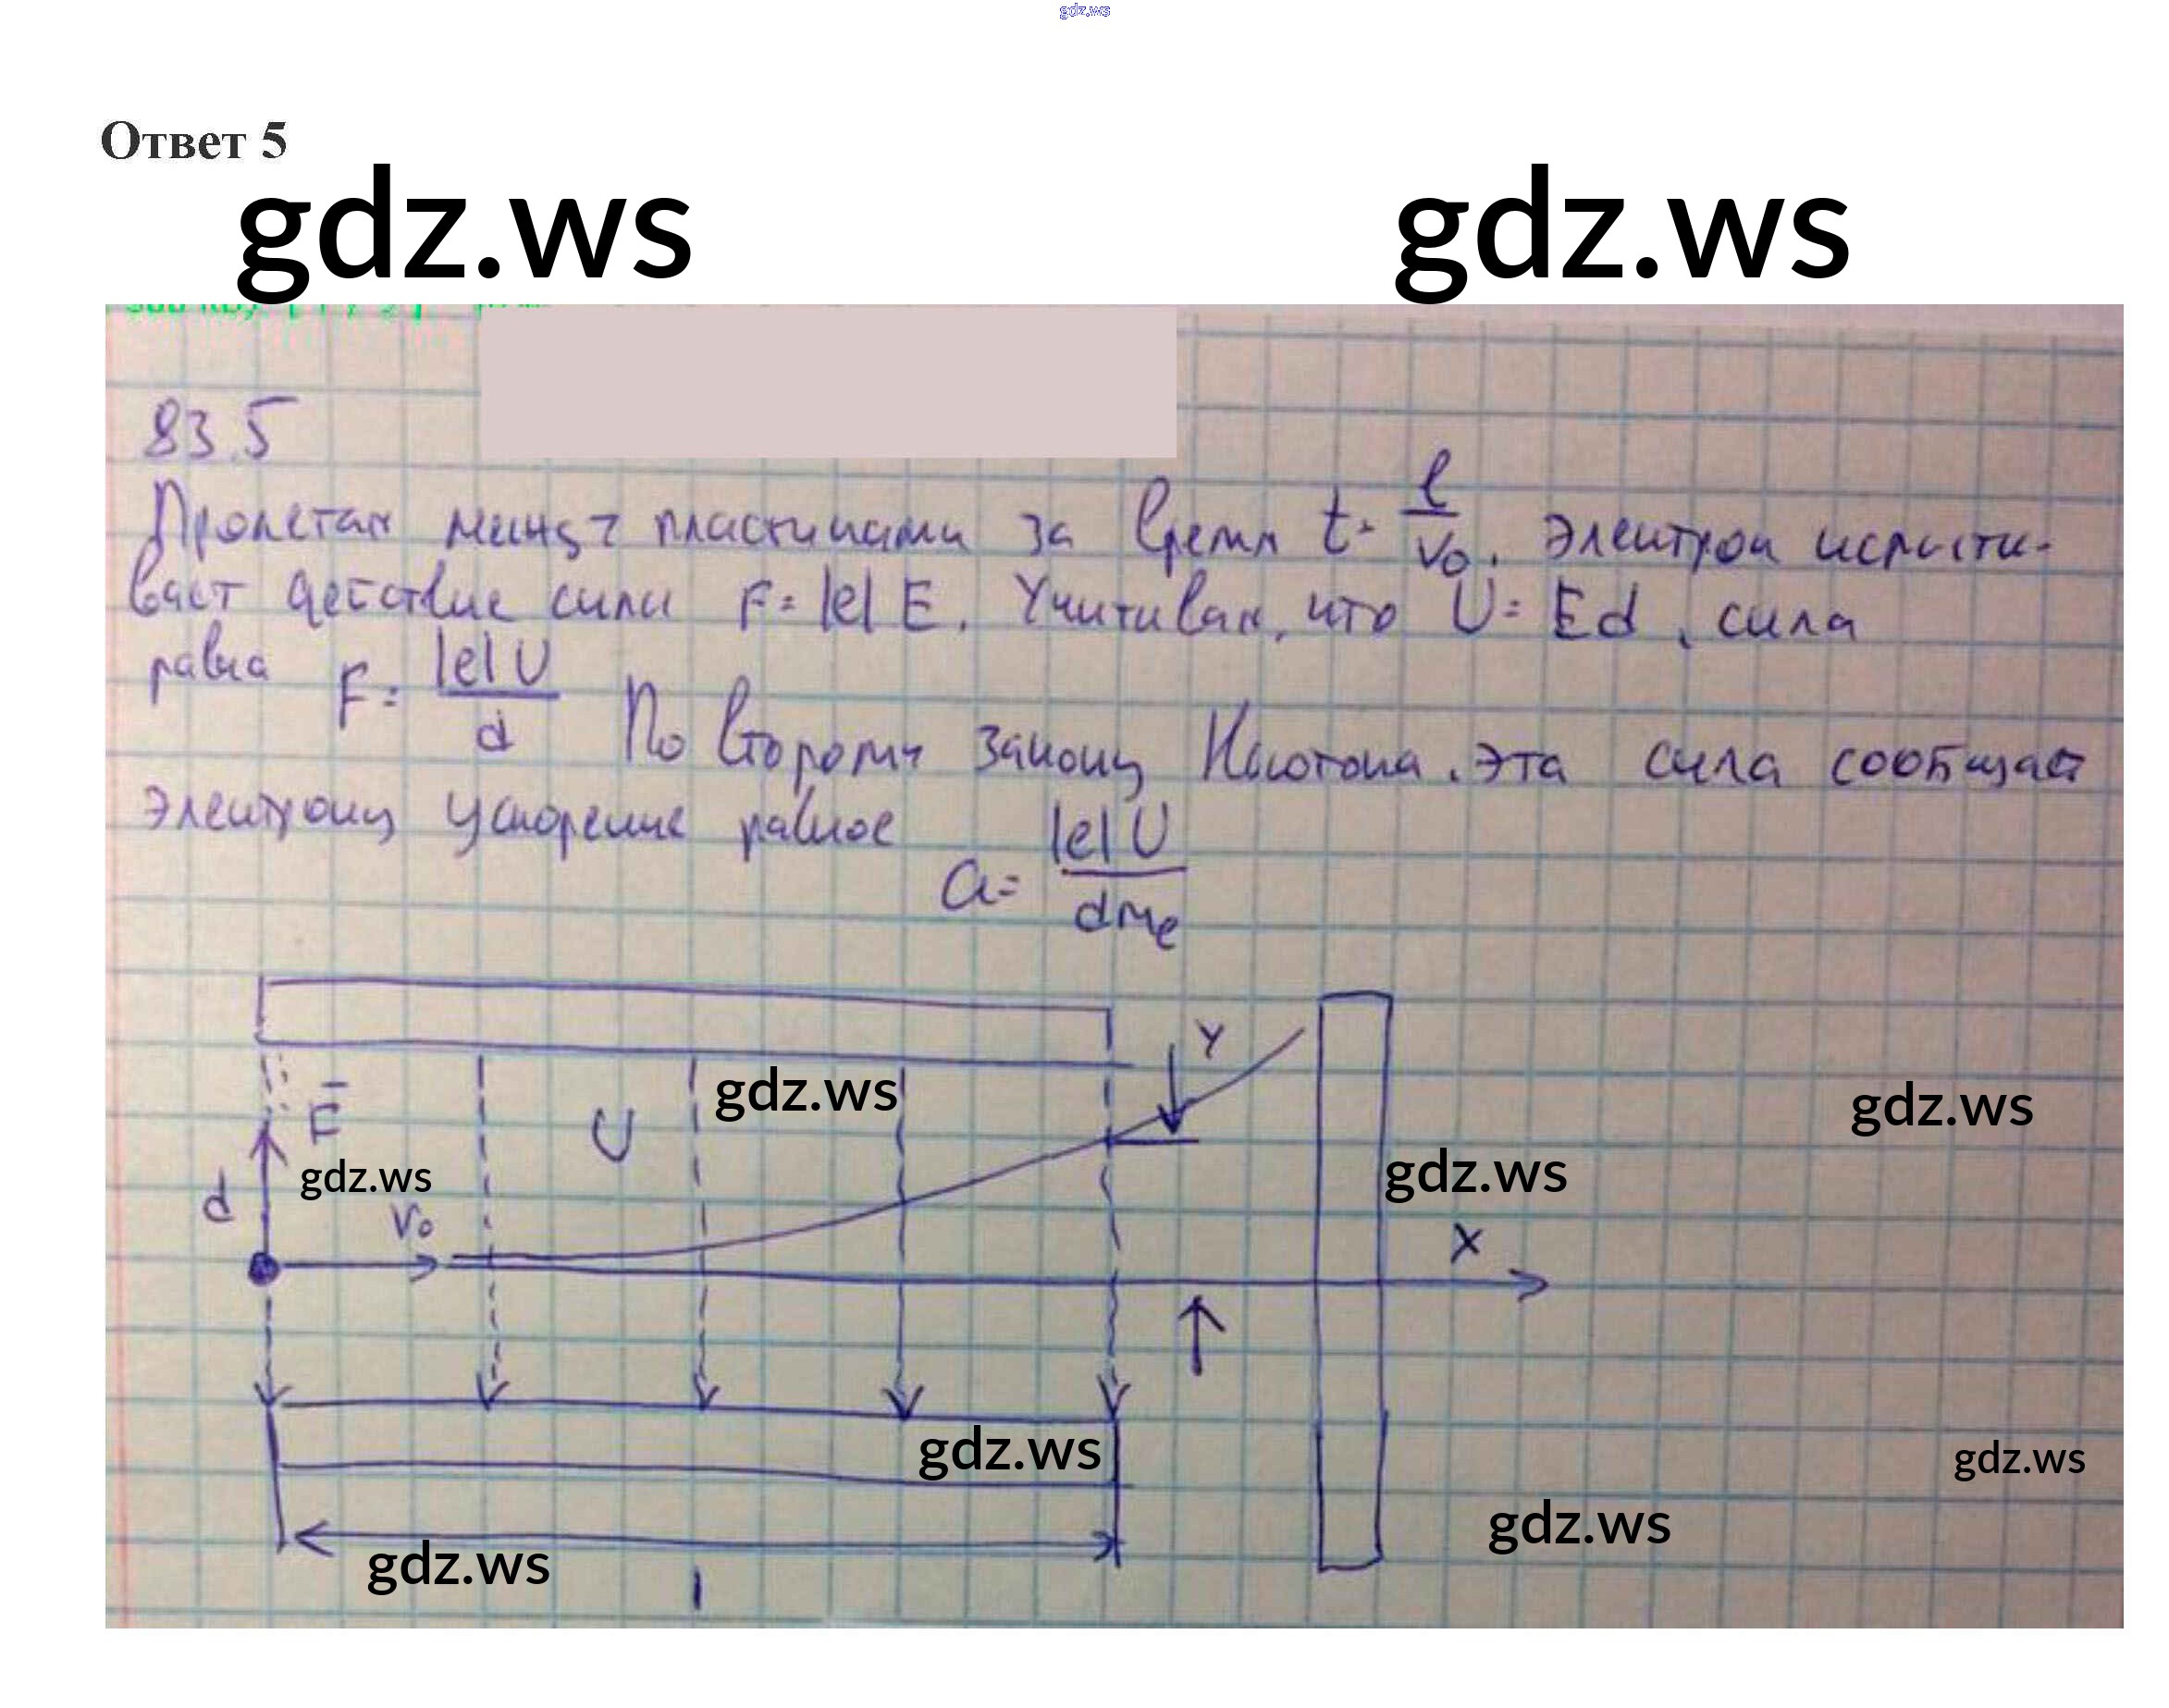 gdz.ws
Ответ 5
gdz.ws gdz.ws
83.5
Пролетая между пластинами за время t = l/v₀, электрон испыты-
вает действие силы F = |e| E. Учитывая, что U = Ed, сила
равна F = |e| U / d По второму закону Ньютона, эта сила сообщает
электрону ускорение равное
a = |e| U / dmₑ
Y
E
U
gdz.ws
gdz.ws
d
gdz.ws
gdz.ws
v₀
X
gdz.ws
gdz.ws
gdz.ws
gdz.ws
l